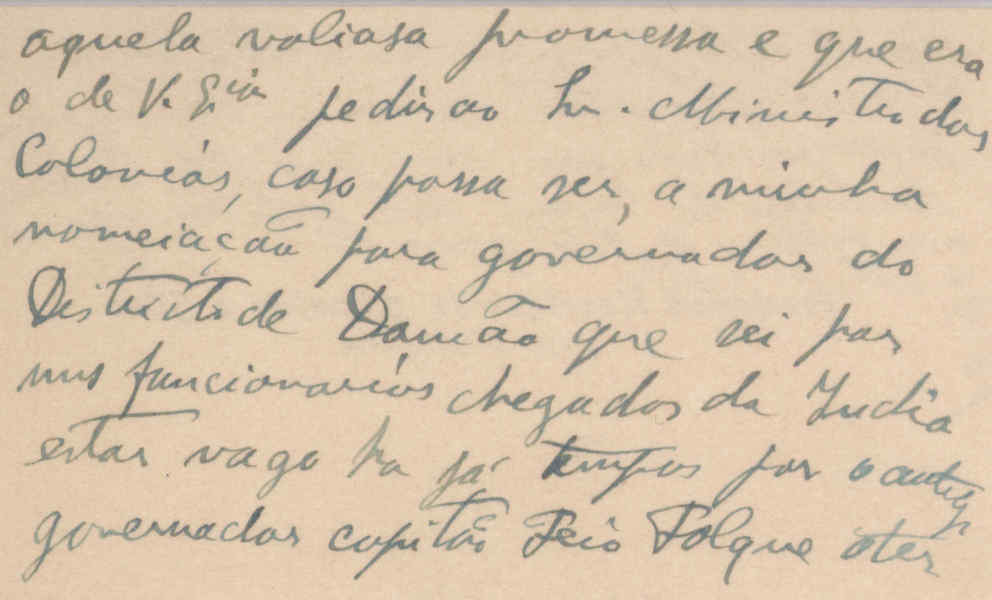 aquela valiosa promessa e que era
o de V. Ex.cia pedir ao Sr. Ministro das
Colonias, caso possa ser, a minha
nomeiação para governador do
Distrito de Damão que sei por
uns funcionarios chegados da India
estar vago ha já tempos por o antigo
governador capitão Feio Folque o ter